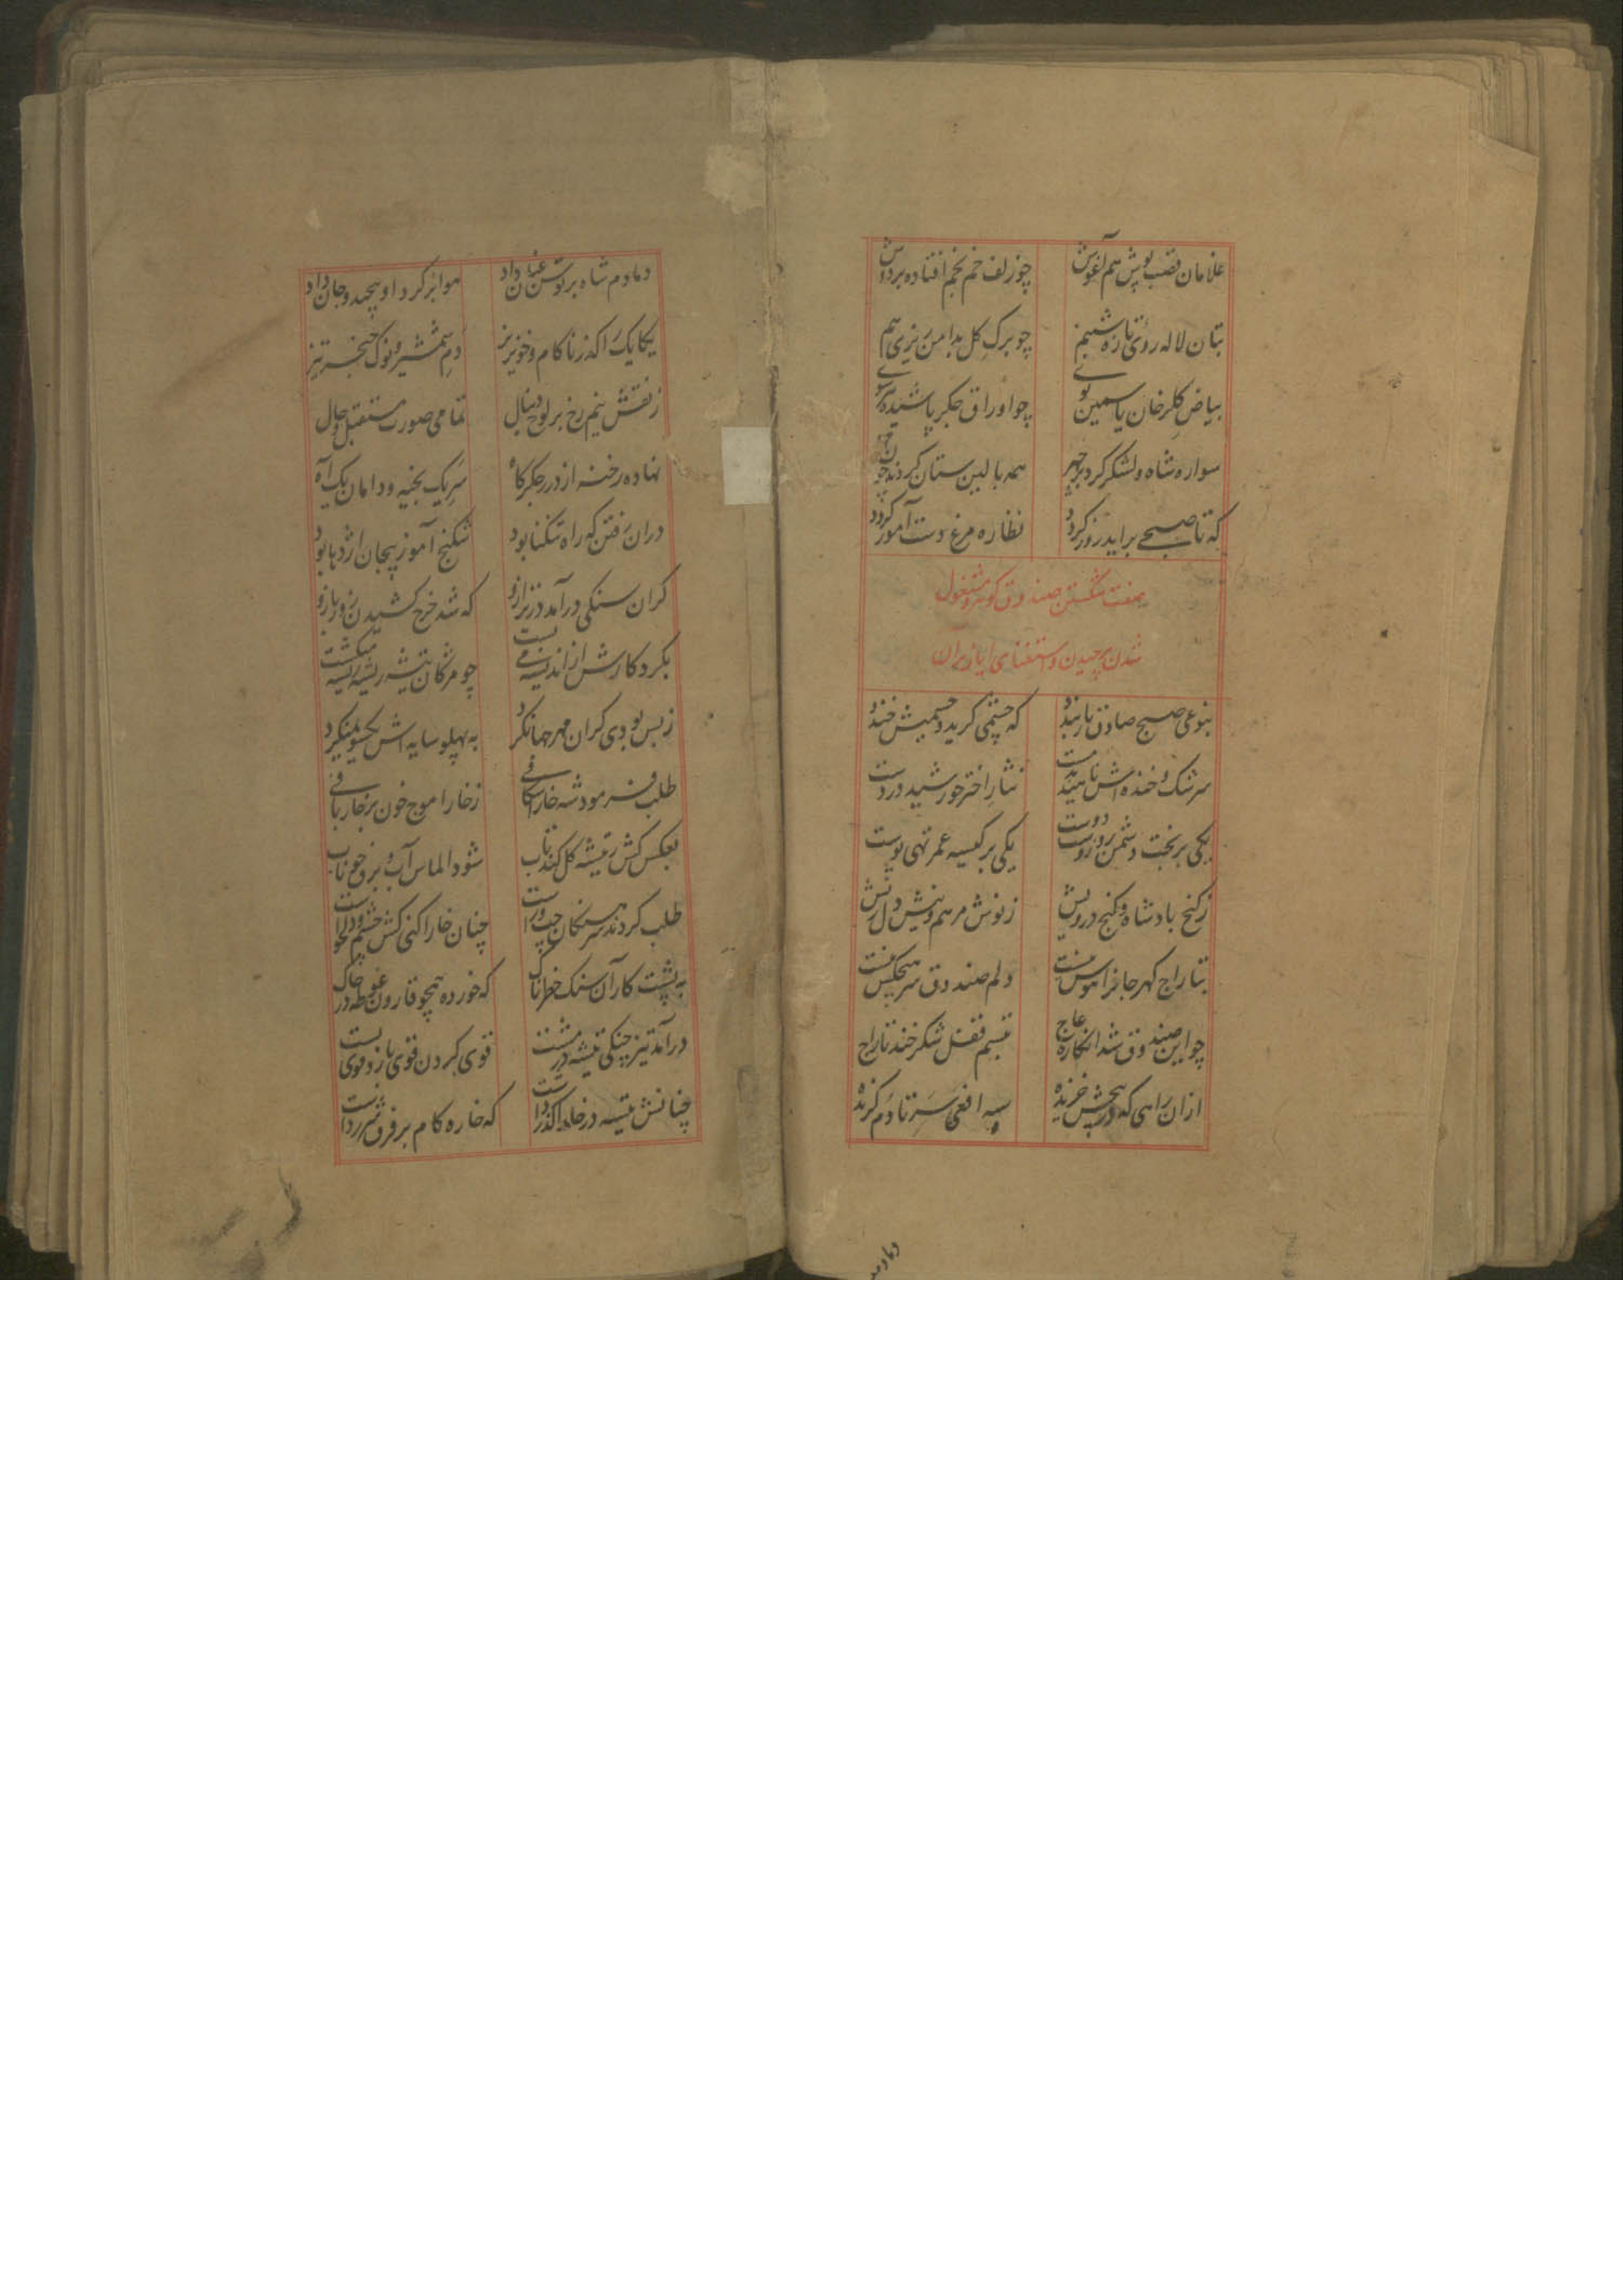 غلامان قصب پوش هم آغوش چو زلف خم بخم افتاده بر دوش
بتان لاله روی تازه شبنم چو برک کل بدامن ریزی هم
بیاض کلرخان یاسمین بوی چو اوراق جکر پاشیده هر سوی
سواره شاه و لشکر کرد بر چهر همه بالین ستان کردند چون
که تا صبحی براید روز کردد نظاره مرغ دست آموز کردد
صفت شکستن صندوق کوهر و مشغول
شدن بر چیدن و استغنای ایاز بران
بنوعی صبح صادق بار بندد که چشمی کرید و چشمیش خندد
سرشک و خنده اش نثار اختر خورشید در دست
یکی بر بخت دشمن روز دوست یکی بر کیسه عمر تهی پوست
ز کنج بادشاه و کنج درویش ز نوش مرهم و نیش دل ریش
بتاراج کهر جانرا هوس نیست دلم صندوق سر هیچکس نیست
چو این صندوق شد انکاره عاج تبسم قفل شکر خند تاراج
ازان راهی که در پیچش خزنده سیه افعی سر تا دم کزنده
دمادم
دمادم شاه بر توسن عنان داد هوا بر کرد او پیچید و جان داد
یکایک را کذر ناکام و خونریز دم شمشیر و نوک خنجر تیز
ز نقش نیم رخ بر لوح دنبال تمامی صورت مستقبل و حال
نهاده رخنه از در جکرکاه سر یک بخیه و دامان یک آه
دران رفتن که راه تنکنا بود شکنج آموز پیچان اژدها بود
کران سنکی درآمد در ترازو که شد خرج کشیدن زور بازو
بکرد کارش از اندیشه می بست چو مژکان تیشه ریشه ریشه میکشت
ز بس بودی کران مهر جهانکرد به پهلو سایه اش یکسو نمیکرد
طلب فرمود شه خارا شکافی ز خارا موج خون بر خار بافی
بعکس کش ز تیشه کل کند تاب شود الماس آب و برق خوناب
طلب کردند سرهنکان چپ و راست چنان خارا کنی کش چشم و دل خواست
به پشت کار آن سنک خطرناک که خورده همچو قارون غوطه در خاک
درآمد تیز چنکی تیشه در مشت قوی کردن قوی بازو قوی پشت
چنانش تیشه در خارا کذر داشت که خاره کام بر فرق شرر داشت